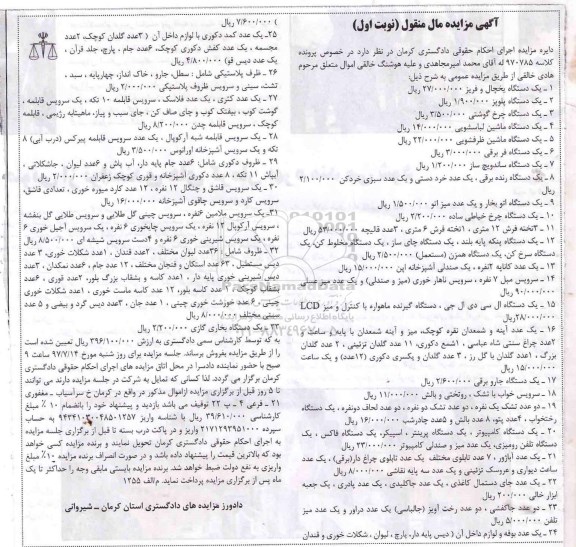 آگهی مزایده مال منقول (نوبت اول)
دایره مزایده اجرای احکام حقوقی دادگستری کرمان در نظر دارد در خصوص پرونده
کلاسه ۹۷۰۷۸۵ له آقای محمد امیرمجاهدی و علیه هوشنگ خالقی اموال متعلق مرحوم
هادی خالقی از طریق مزایده عمومی به شرح ذیل:
۱ ـ یک دستگاه یخچال و فریزر ۲۷/۰۰۰/۰۰۰ ریال
۲ ـ یک دستگاه پلوپز ۱/۹۰۰/۰۰۰ ریال
۳ ـ یک دستگاه چرخ گوشتی ۳/۵۰۰/۰۰۰ ریال
۴ ـ یک دستگاه ماشین لباسشویی ۱۴/۰۰۰/۰۰۰ ریال
۵ ـ یک دستگاه ماشین ظرفشویی ۲۲/۰۰۰/۰۰۰ ریال
۶ ـ یک دستگاه فر برقی ۳/۰۰۰/۰۰۰ ریال
۷ ـ یک دستگاه ساندویچ ساز ۱/۲۰۰/۰۰۰ ریال
۸ ـ یک دستگاه رنده برقی ، یک عدد خرد دستی و یک عدد سبزی خردکن ۲/۱۰۰/۰۰۰
ریال
۹ ـ یک دستگاه اتو بخار و یک عدد میز اتو ۱/۵۰۰/۰۰۰ ریال
۱۰ ـ یک دستگاه چرخ خیاطی ساده ۲/۲۰۰/۰۰۰ ریال
۱۱ ـ ۳تخته فرش ۱۲ متری ، ۱تخته فرش ۶ متری ، ۳عدد قالیچه ۵۳/۰۰۰/۰۰۰ ریال
۱۲ ـ یک دستگاه پنکه پایه بلند ، یک دستگاه چای ساز ، یک دستگاه مخلوط کن، یک
دستگاه سرخ کن، یک دستگاه همزن (مستعمل) ۲/۵۰۰/۰۰۰ ریال
۱۳ ـ یک عدد کاناپه ۲نفره ، یک صندلی آشپزخانه اپن ۱۵/۰۰۰/۰۰۰ ریال
۱۴ ـ سرویس مبل ۷ نفره ، سرویس ناهار خوری (میز و صندلی) و یک عدد میز عسلی
۹۰/۰۰۰/۰۰۰ ریال
۱۵ ـ یک دستگاه ال سی دی ال جی ، دستگاه گیرنده ماهواره با کنترل و میز LCD
۲۸/۰۰۰/۰۰۰ریال
۱۶ ـ یک عدد آینه و شمعدان نقره کوچک، میز و آینه شمعدان با پایه‌ی ساعت و
۲عدد چراغ سنتی شاه عباسی ، ۱شمع دکوری، ۱۱ عدد گلدان تزئینی ، ۲ عدد گلدان
بزرگ ، ۱عدد گلدان با گل رز ، ۳ عدد گلدان و یکسری دکوری (۱۲عدد) و یک ساعت
۱۵/۰۰۰/۰۰۰ ریال
۱۷ ـ یک دستگاه جارو برقی ۲/۶۰۰/۰۰۰ ریال
۱۸ ـ سرویس خواب با تشک ، روتختی و بالش ۱۱/۰۰۰/۰۰۰ ریال
۱۹ ـ دو عدد تشک یک نفره ، دو عدد تشک دو نفره ، دو عدد لحاف دونفره ، یک دستگاه
رختخواب ، ۴عدد پتو، ۸ عدد بالش و ۵عدد چادرشب ۱۶/۰۰۰/۰۰۰ ریال
۲۰ ـ یک دستگاه کامپیوتر ، یک دستگاه پرینتر ، اسپیکر، یک دستگاه فاکس ، یک
دستگاه تلفن رومیزی، یک عدد میز و صندلی کامپیوتر ۲۳/۰۰۰/۰۰۰ ریال
۲۱ ـ یک عدد آباژور ، ۷ عدد تابلوی مختلف یک عدد تابلوی چراغ دار(برقی) ، یک عدد
ساعت دیواری و عروسک تزئینی و یک عدد سه پایه نقاشی ۸/۰۰۰/۰۰۰ ریال
۲۲ ـ یک عدد جای دستمال کاغذی ، یک عدد جاکلیدی ، یک عدد پادری ، یک جعبه
ابزار خالی ۲۰۰/۰۰۰ ریال
۲۳ ـ دو عدد جاکفشی ، دو عدد رخت آویز (جالباسی) یک عدد دراور و یک عدد میز
تلفن ۵/۰۰۰/۰۰۰ ریال
۲۴ ـ یک عدد بوفه و لوازم داخل آن ( دیس پایه دار، پارچ ، لیوان ، شکلات خوری و قندان
) ۷/۶۰۰/۰۰۰ ریال
۲۵ـ یک عدد کمد دکوری با لوازم داخل آن ( ۳عدد گلدان کوچک، ۲عدد
مجسمه ، یک عدد کفش دکوری کوچک، ۶عدد جام ، پارچ، جلد قرآن ،
یک عدد دیس قو) ۴/۸۰۰/۰۰۰ ریال
۲۶ ـ ظرف پلاستیکی شامل : سطل، جارو ، خاک انداز، چهارپایه ، سبد ،
تشت، سینی و سرویس ظروف پلاستیکی ۲/۰۰۰/۰۰۰ ریال
۲۷ ـ یک عدد کتری ، یک عدد فلاسک ، سرویس قابلمه ۱۰ تکه ، یک سرویس قابلمه ،
گوشت کوب ، بیفتک کوب و چای صاف کن ، جای سیب و پیاز، ماهیتابه رژیمی ، قابلمه
کوچک ، سرویس قابلمه چدن ۸/۲۰۰/۰۰۰ ریال
۲۸ ـ یک سرویس قابلمه شبه آرکوپال ، یک عدد سرویس قابلمه پیرکس (درب آبی) ۸
تکه و یک سرویس آشپزخانه اورانوس ۳/۵۰۰/۰۰۰ ریال
۲۹ ـ ظروف دکوری شامل: ۶عدد جام پایه دار، آب پاش و ۶عدد لیوان ، جاشکلاتی ،
آبپاش ۱۱ تکه ، ۸ عدد دکوری آشپزخانه و قوری کوچک زعفران ۲/۰۰۰/۰۰۰ ریال
۳۰ ـ یک سرویس قاشق و چنگال ۱۲ نفره ، ۱۲ عدد کارد میوه خوری ، تعدادی قاشق،
سرویس کارد و سرویس چاقوی آشپزخانه ۱۶/۰۰۰/۰۰۰ ریال
۳۱ـ یک سرویس ملامین ۶نفره ، سرویس چینی گل طلایی و سرویس طلایی گل بنفشه
، سرویس آرکوپال ۱۲ نفره ، یک سرویس چایخوری ۶ نفره ، یک سرویس آجیل خوری ۶
نفره ، یک سرویس شیرینی خوری ۶ نفره و ۴دست سرویس شیشه ای ۸/۵۰۰/۰۰۰ ریال
۳۲ ـ ظروف شامل : ۳۶عدد لیوان مختلف ، ۲عدد قندان ، ۱عدد شکلات خوری، ۳ عدد
دیس مستطیل ، ۶۳عدد استکان و فنجان مختلف ، ۱۲ عدد جام ، ۶عدد نمکدان ، ۳عدد
دیس شیرینی خوری پایه دار ، ۱عدد کاسه و بشقاب بزرگ بلور، ۲عدد قوری ، ۶عدد
لیوان کوچک ، ۲عدد کاسه بلور، ۱۲ عدد کاسه ماست خوری ، ۱عدد شکلات خوری
چینی ، ۶ عدد خورشت خوری چینی ، ۱ عدد جان ، ۳عدد دیس گرد و بیضی و ۵ عدد
سینی مختلف ۸/۰۰۰/۰۰۰ ریال
۳۳ ـ یک دستگاه بخاری گازی ۲/۲۰۰/۰۰۰ ریال
به که توسط کارشناس سمی دادگستری به ارزش ۳۹۶/۱۰۰/۰۰۰ ریال تعیین شده است
را از طریق مزایده بفروش برساند. جلسه مزایده برای روز شنبه مورخ ۹۷/۷/۱۴ ساعت ۹
صبح با حضور نماینده دادسرا در محل اتاق مزایده های اجرای احکام حقوقی دادگستری
کرمان برگزار می گردد. لذا کسانی که تمایل به شرکت در جلسه مزایده دارند می توانند
تا ۵ روز قبل از برگزاری مزایده ازاموال مذکور در واقع در کرمان خ سرآسیاب ـ مغفوری
۲۱ ـ فرعی ۴ ـ پ ۲۲ توقیف می باشد بازدید و پیشنهاد خود را بانضمام ۱۰ ٪ مبلغ
کارشناسی ۳۹/۶۱۰/۰۰۰ ریال با شناسه واریز ۹۴۳۴۱۰۳۰۰۴۸۵۰۱۲۵۷ به حساب
سپرده ۲۱۷۱۲۹۲۹۵۱۰۰۰ واریز و در پاکت درب بسته تا قبل از برگزاری جلسه مزایده
به اجرای احکام حقوقی دادگستری کرمان تحویل نمایند و برنده مزایده کسی خواهد
بود که بالاترین قیمت را پیشنهاد داده باشد و در صورت انصراف برنده مزایده ۱۰٪ مبلغ
واریزی به نفع دولت ضبط خواهد شد. برنده مزایده بایستی مابقی وجه را حداکثر تا یک
ماه پس از برگزاری مزایده پرداخت نماید. م‌الف ۱۲۵۵
دادورز مزایده های دادگستری استان کرمان ـ شیروانی